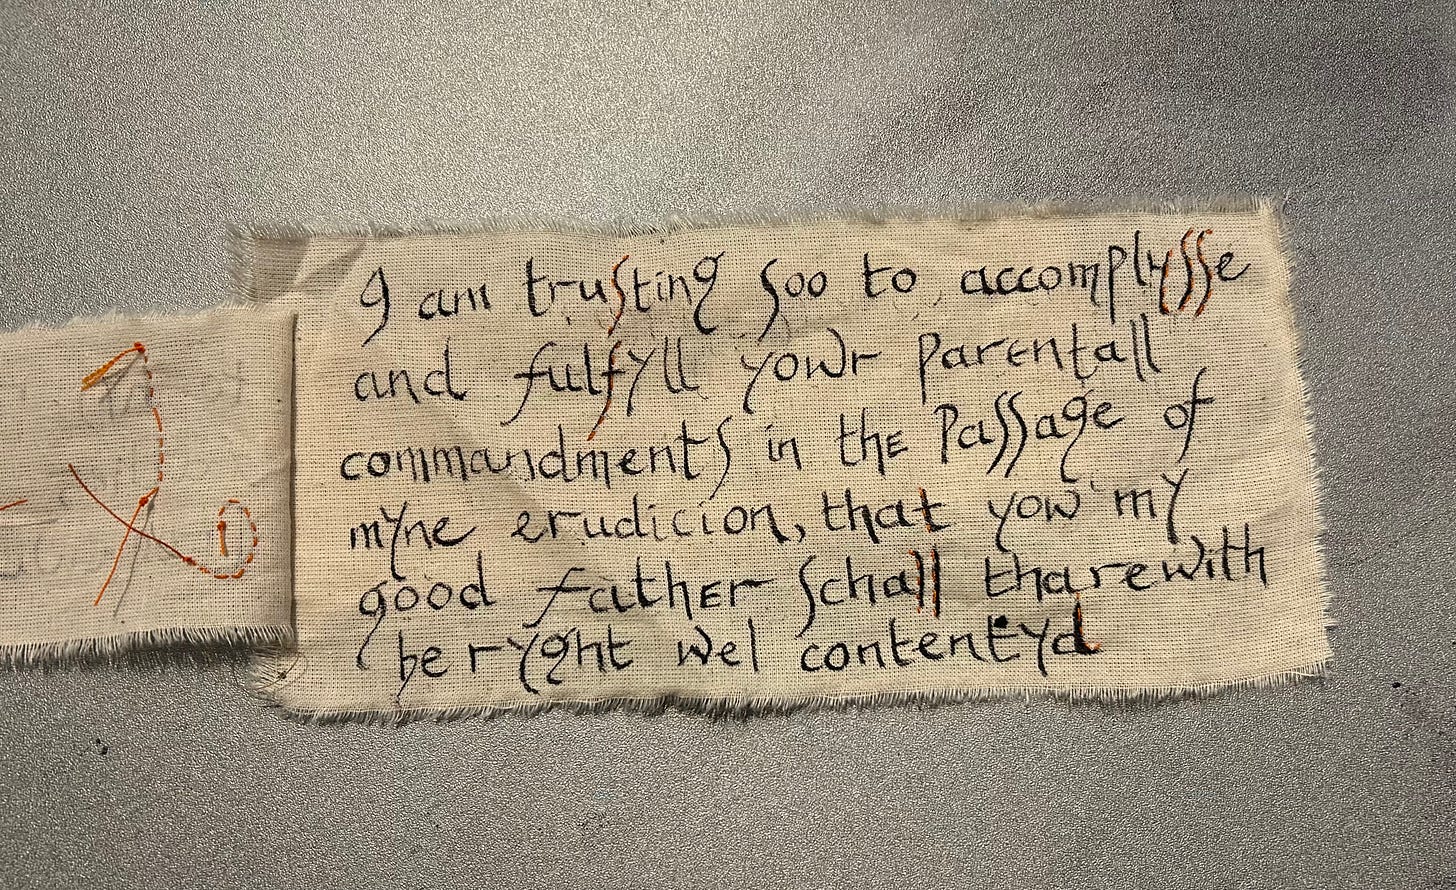 I am trusting soo to accomplysse
and fulfyll yowr parentall
commandments in the passage of
myne erudicion, that yow my
good father schall tharewith
be ryght wel contentyd